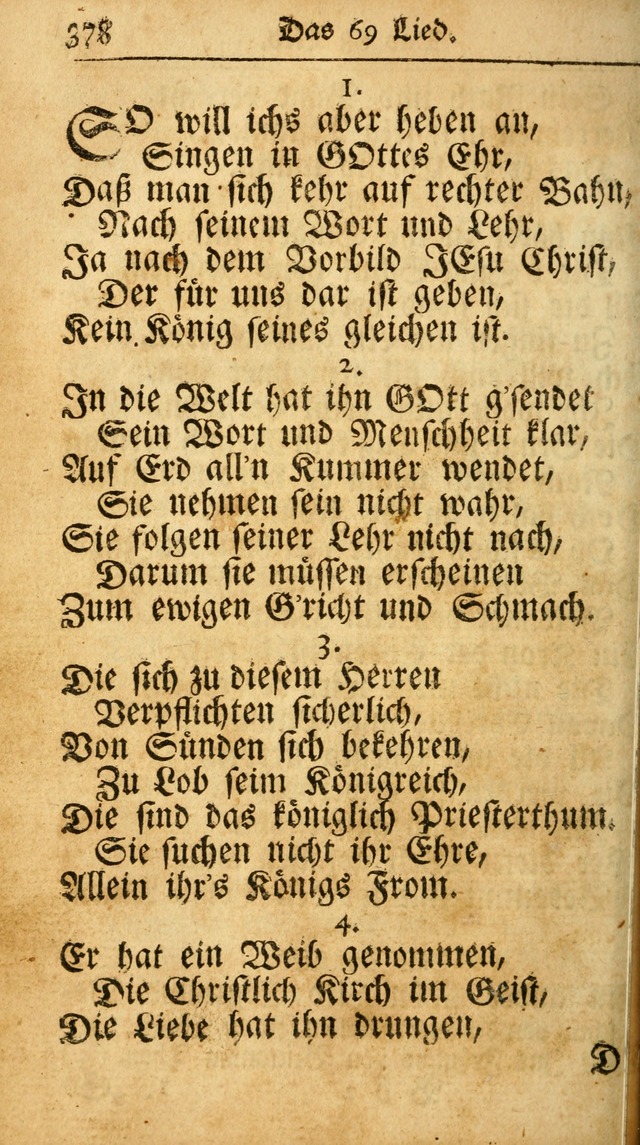 378 Das 69 Lied.
1.
SO will ichs aber heben an,
Singen in GOttes Ehr,
Daß man sich kehr auf rechter Bahn,
Nach seinem Wort und Lehr,
Ja nach dem Vorbild JEsu Christ,
Der für uns dar ist geben,
Kein König seines gleichen ist.
2.
In die Welt hat ihn GOtt g'sendet
Sein Wort und Menschheit klar,
Auf Erd all'n Kummer wendet,
Sie nehmen sein nicht wahr,
Sie folgen seiner Lehr nicht nach,
Darum sie müssen erscheinen
Zum ewigen G'richt und Schmach.
3.
Die sich zu diesem Herren
Verpflichten sicherlich,
Von Sünden sich bekehren,
Zu Lob seim Königreich,
Die sind das königlich Priesterthum.
Sie suchen nicht ihr Ehre,
Allein ihr's Königs From.
4.
Er hat ein Weib genommen,
Die Christlich Kirch im Geist,
Die Liebe hat ihn drungen,
D